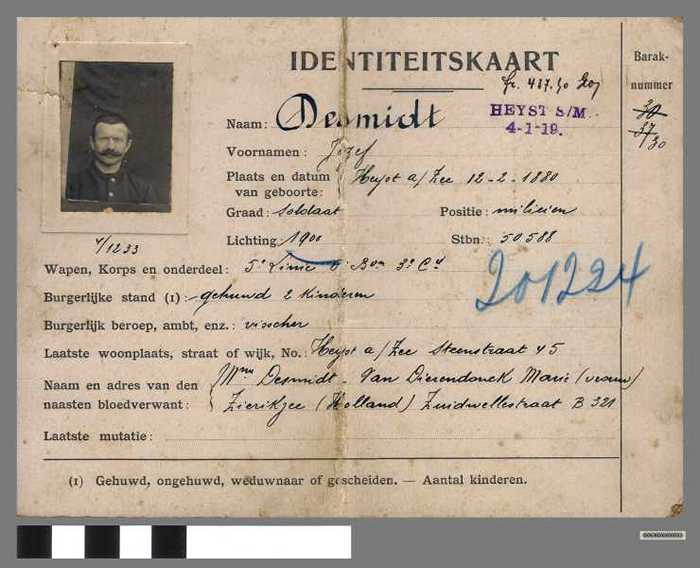 IDENTITEITSKAART
Barak-
nummer
30
37
30
HEYST S/M.
4-1-19.
Naam: Desmidt
Voornamen: Jozef
Plaats en datum van geboorte: Heyst a/Zee 12-2-1880
Graad: soldaat Positie: milicien
Lichting 1900 Stbn.: 50588
V/1233
Wapen, Korps en onderdeel: 5e Linie Bon 3e Cie
201224
Burgerlijke stand (1): gehuwd 2 Kinderen
Burgerlijk beroep, ambt, enz.: visscher
Laatste woonplaats, straat of wijk, No.: Heyst a/Zee Steenstraat 45
Naam en adres van den Mme Desmidt - Van Dierendonck Marie (vrouw)
naasten bloedverwant: Zierikzee (Holland) Zuidwellestraat B 321
Laatste mutatie:
(1) Gehuwd, ongehuwd, weduwnaar of gescheiden. — Aantal kinderen.